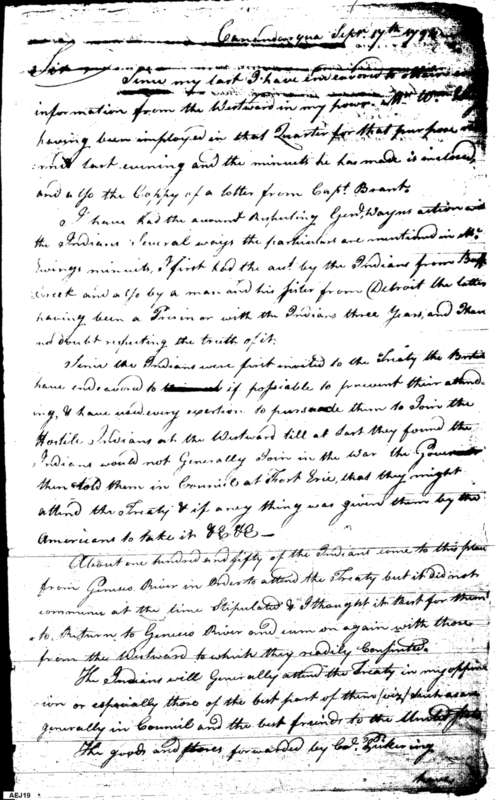 Canandarqua Sept. 17th 179
Sir
Since my last I have endeavored to obtain
information from the Westward in my power. Mr. Wm.
having been imployed in that Quarter for that purpose
last evening and the minuets he has made is inclosed
and also the Coppy of a letter from Capt. Brant.
I have had the account Respecting Genl. Wayns action with
the Indians Several ways the particulars are mentioned in Mr.
Ewings minuets, I first had the act. by the Indians from Buff
Creek and also by a man and his Sister from Detroit the latter
having been a Prisin or with the Indians three Years, and I have
no doubt respecting the truth of it.
Since the Indians were first invited to the Treaty the British
have endeavored to if possiable to prevent their attend-
ing, & have used every exertion to pursuade them to Join the
Hostile Indians at the Westward till at last they found the
Indians would not Generally Join in the war the Governor
then told them in Council at Fort Erie, that they might
attend the Treaty & if any thing was given them by the
Americans to take it &C&C—
About one hundred and fifty of the Indians come to this place
from Geneseo River in Order to attend the Treaty but it did not
commence at the time Stipulated & I thought it best for them
to Return to Geneseo River and cum on again with those
from the Westward to which they readily Consented.
The Indians will Generally attend the Treaty in my oppin-
ion or especially those of the best part of them (viz) Such as are
generally in Council and the best freinds to the United States
The goods and stores forwarded by Col. Pickering
have
AEJ19